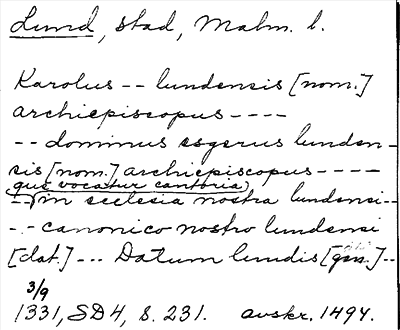 Lund, stad, Malm. l.
Karolus -- lundensis [nom.]
archiepiscopus ----
-- dominus esgerus lunden-
sis [nom.] archiepiscopus ----
que vocatur cantoria
-- in ecclesia nostra lundensi --
-- canonico nostro lundensi
[dat.] --- Datum lundis [gen.] --
3/9
1331, SD4, s. 231. avskr. 1494.